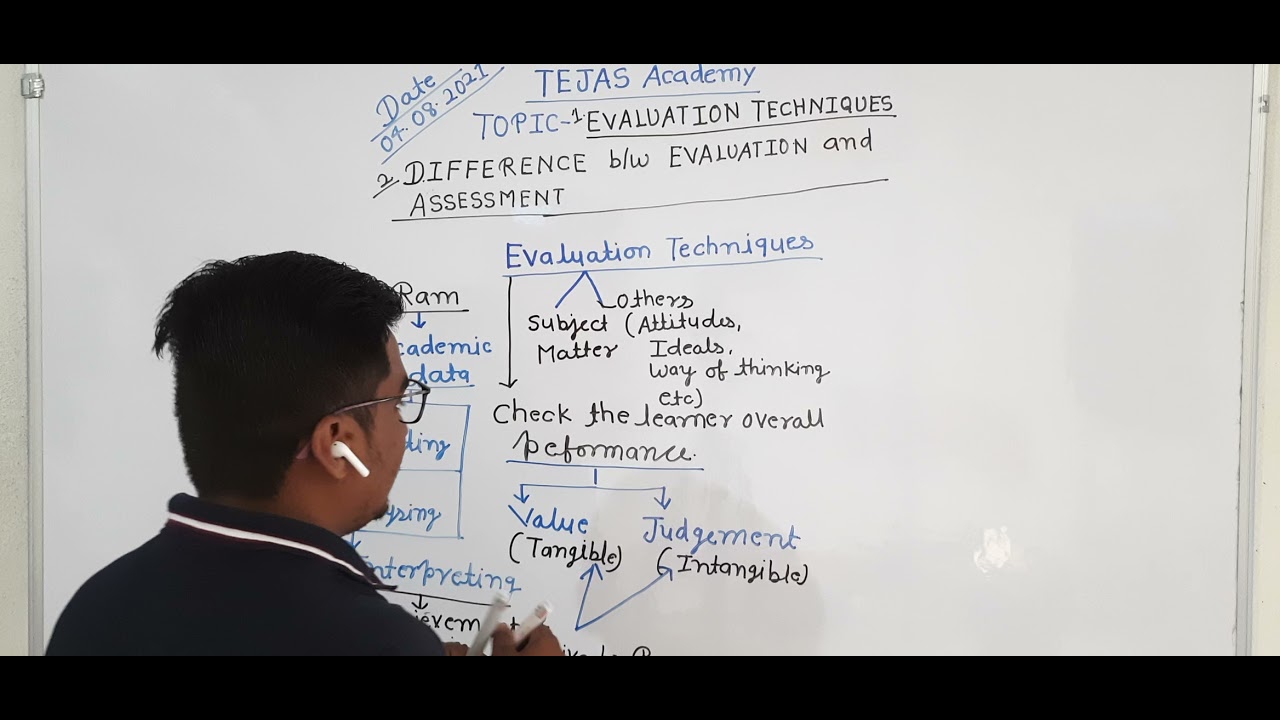 Date
04.08.2021
TEJAS Academy
TOPIC-1 EVALUATION TECHNIQUES
2. DIFFERENCE b/w EVALUATION and
ASSESSMENT
Evaluation Techniques
Others
Subject (Attitudes,
Matter Ideals,
way of thinking
etc)
Check the learner overall
peformance.
Value
(Tangible)
Judgement
(Intangible)
Ram
data